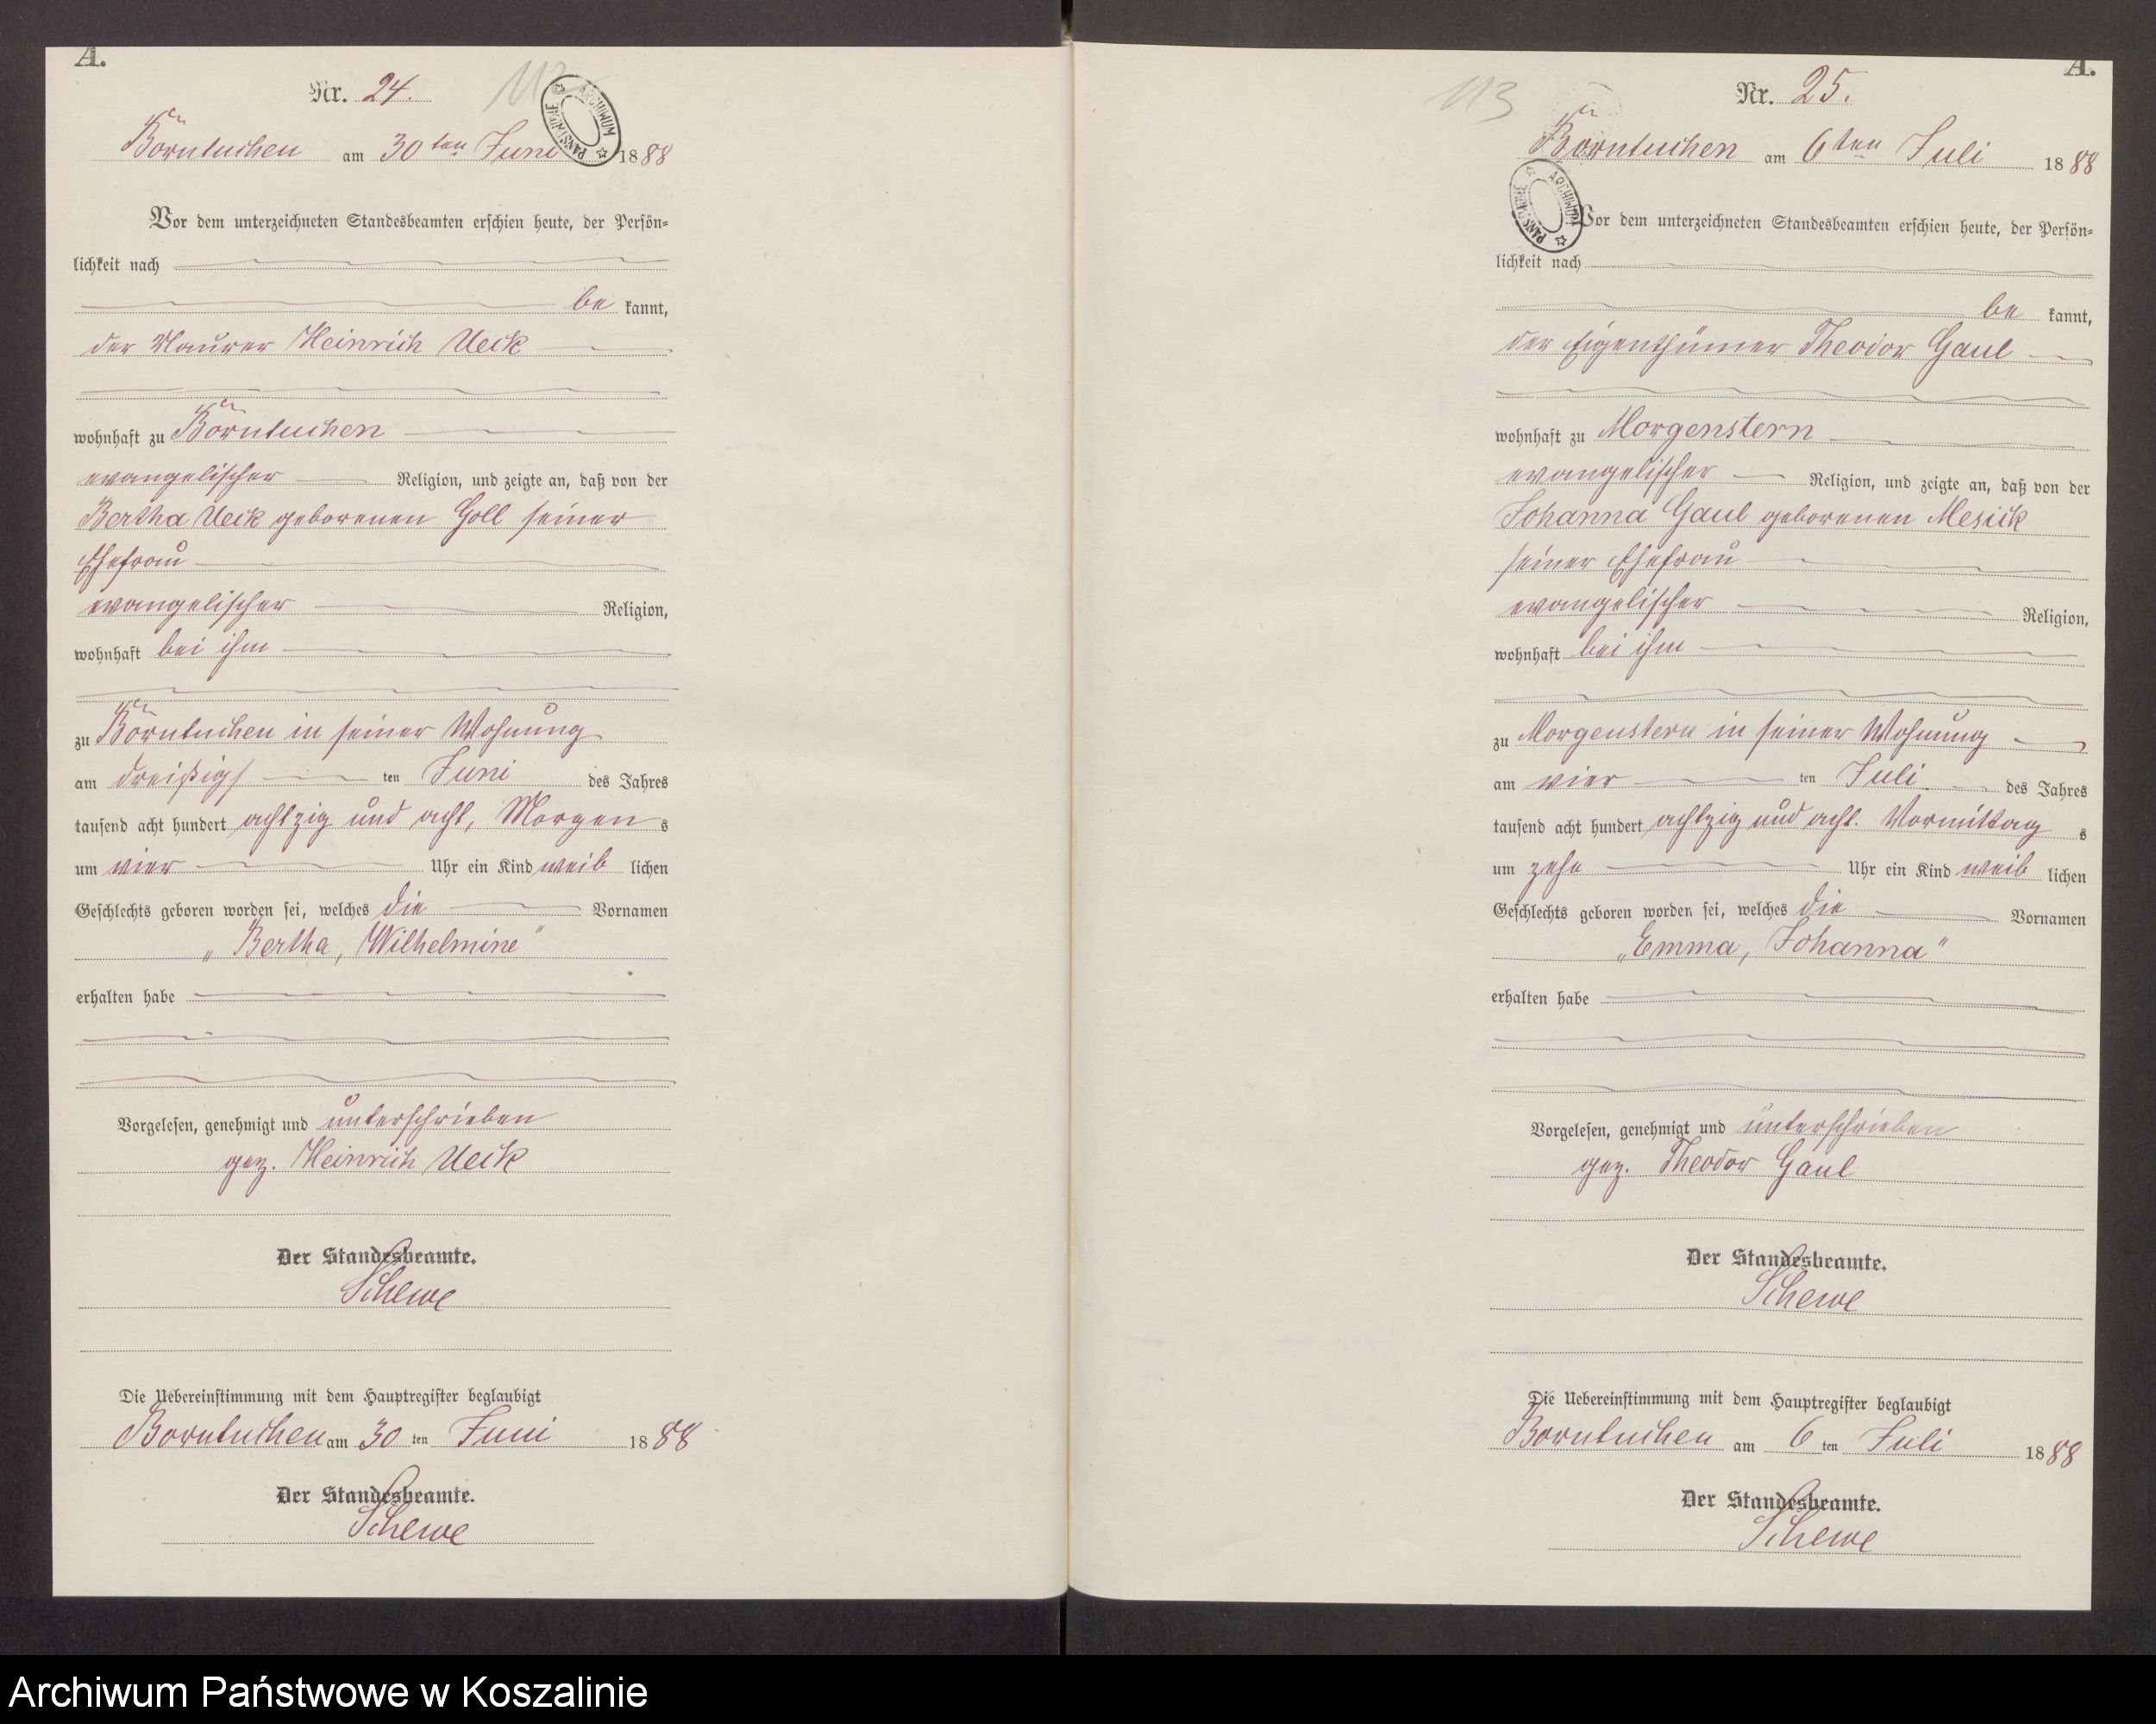 A.
Nr. 24.
112
ARCHIWUM PAŃSTWOWE
Borntuchen am 30 ten Juni 1888
Vor dem unterzeichneten Standesbeamten erschien heute, der Persön=
lichkeit nach
be kannt,
der Maurer Heinrich Ueck
wohnhaft zu Borntuchen
evangelischer Religion, und zeigte an, daß von der
Bertha Ueck geborenen Goll seiner
Ehefrau
evangelischer Religion,
wohnhaft bei ihm
zu Borntuchen in seiner Wohnung
am dreißigs ten Juni des Jahres
tausend acht hundert achtzig und acht, Morgen s
um vier Uhr ein Kind weib lichen
Geschlechts geboren worden sei, welches die Vornamen
„Bertha, Wilhelmine"
erhalten habe
Vorgelesen, genehmigt und unterschrieben
gez. Heinrich Ueck
Der Standesbeamte.
Schewe
Die Uebereinstimmung mit dem Hauptregister beglaubigt
Borntuchen am 30 ten Juni 1888
Der Standesbeamte.
Schewe
A.
113
Nr. 25.
Borntuchen am 6ten Juli 1888
ARCHIWUM PAŃSTWOWE
Vor dem unterzeichneten Standesbeamten erschien heute, der Persön=
lichkeit nach
be kannt,
der Eigenthümer Theodor Gaul
wohnhaft zu Morgenstern
evangelischer Religion, und zeigte an, daß von der
Johanna Gaul geborenen Mesick
seiner Ehefrau
evangelischer Religion,
wohnhaft bei ihm
zu Morgenstern in seiner Wohnung
am vier ten Juli des Jahres
tausend acht hundert achtzig und acht. Vormittag s
um zehn Uhr ein Kind weib lichen
Geschlechts geboren worden sei, welches die Vornamen
„Emma, Johanna"
erhalten habe
Vorgelesen, genehmigt und unterschrieben
gez. Theodor Gaul
Der Standesbeamte.
Schewe
Die Uebereinstimmung mit dem Hauptregister beglaubigt
Borntuchen am 6 ten Juli 1888
Der Standesbeamte.
Schewe
Archiwum Państwowe w Koszalinie